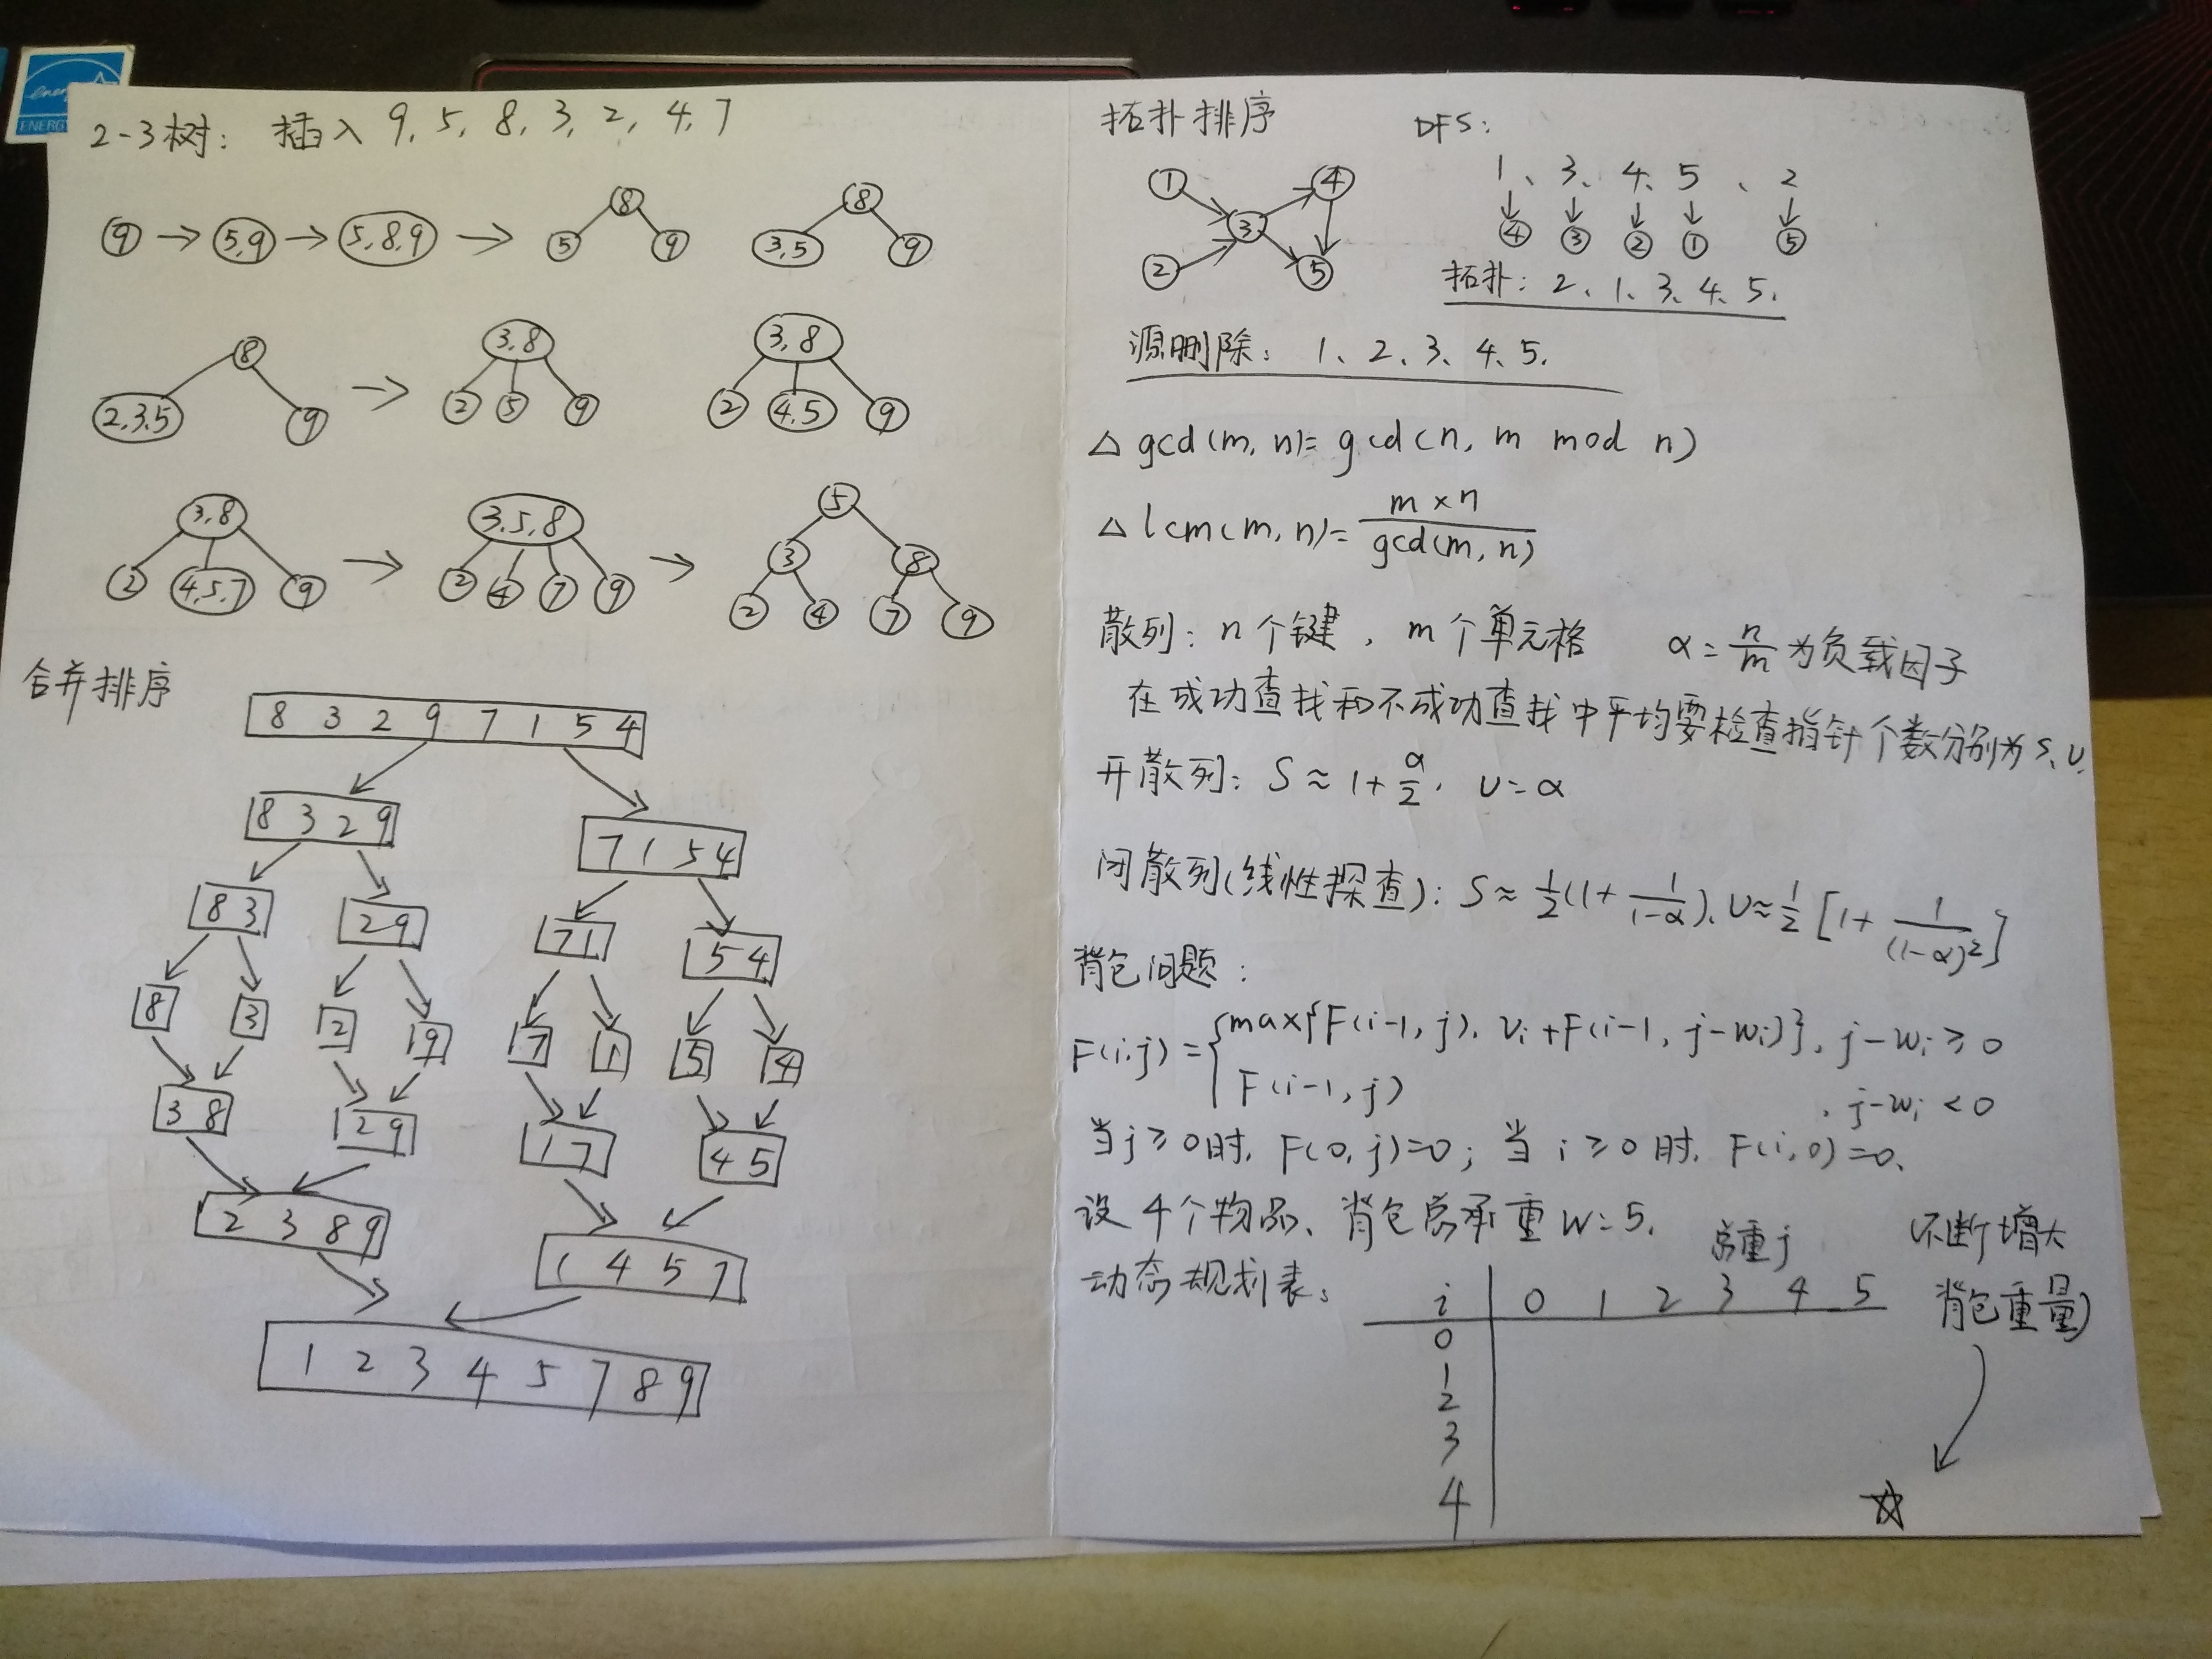 energy
ENERGY
2-3树: 插入 9, 5, 8, 3, 2, 4, 7
9 → 5,9 → 5,8,9 → 8
5 9
8
3,5 9
8
2,3,5 9
→ 3,8
2 5 9
3,8
2 4,5 9
3,8
2 4,5,7 9
→ 3,5,8
2 4 7 9
→ 5
3 8
2 4 7 9
合并排序
8 3 2 9 7 1 5 4
8 3 2 9 7 1 5 4
8 3 2 9 7 1 5 4
8 3 2 9 7 1 5 4
3 8 2 9 1 7 4 5
2 3 8 9 1 4 5 7
1 2 3 4 5 7 8 9
拓扑排序
1 4
3
2 5
DFS:
1、3、4、5、2
↓ ↓ ↓ ↓ ↓
④ ③ ② ① ⑤
拓扑: 2、1、3、4、5.
源删除: 1、2、3、4、5.
△ gcd(m, n)= gcd(n, m mod n)
△ lcm(m, n)= m×n / gcd(m, n)
散列: n个键, m个单元格 α = n/m 为负载因子
在成功查找和不成功查找中平均要检查指针个数分别为S、U.
开散列: S ≈ 1 + α/2, U = α
闭散列(线性探查): S ≈ 1/2 (1 + 1/(1-α)), U ≈ 1/2 [1 + 1/(1-α)²]
背包问题:
F(i,j) = { max{F(i-1, j), vi + F(i-1, j-wi)}, j-wi ≥ 0
F(i-1, j) , j-wi < 0
当j≥0时, F(0, j)=0; 当 i≥0时, F(i, 0)=0.
设4个物品、背包总承重W=5.
动态规划表:
总重j
i 0 1 2 3 4 5
0
1
2
3
4 ☆
(不断增大
背包重量)